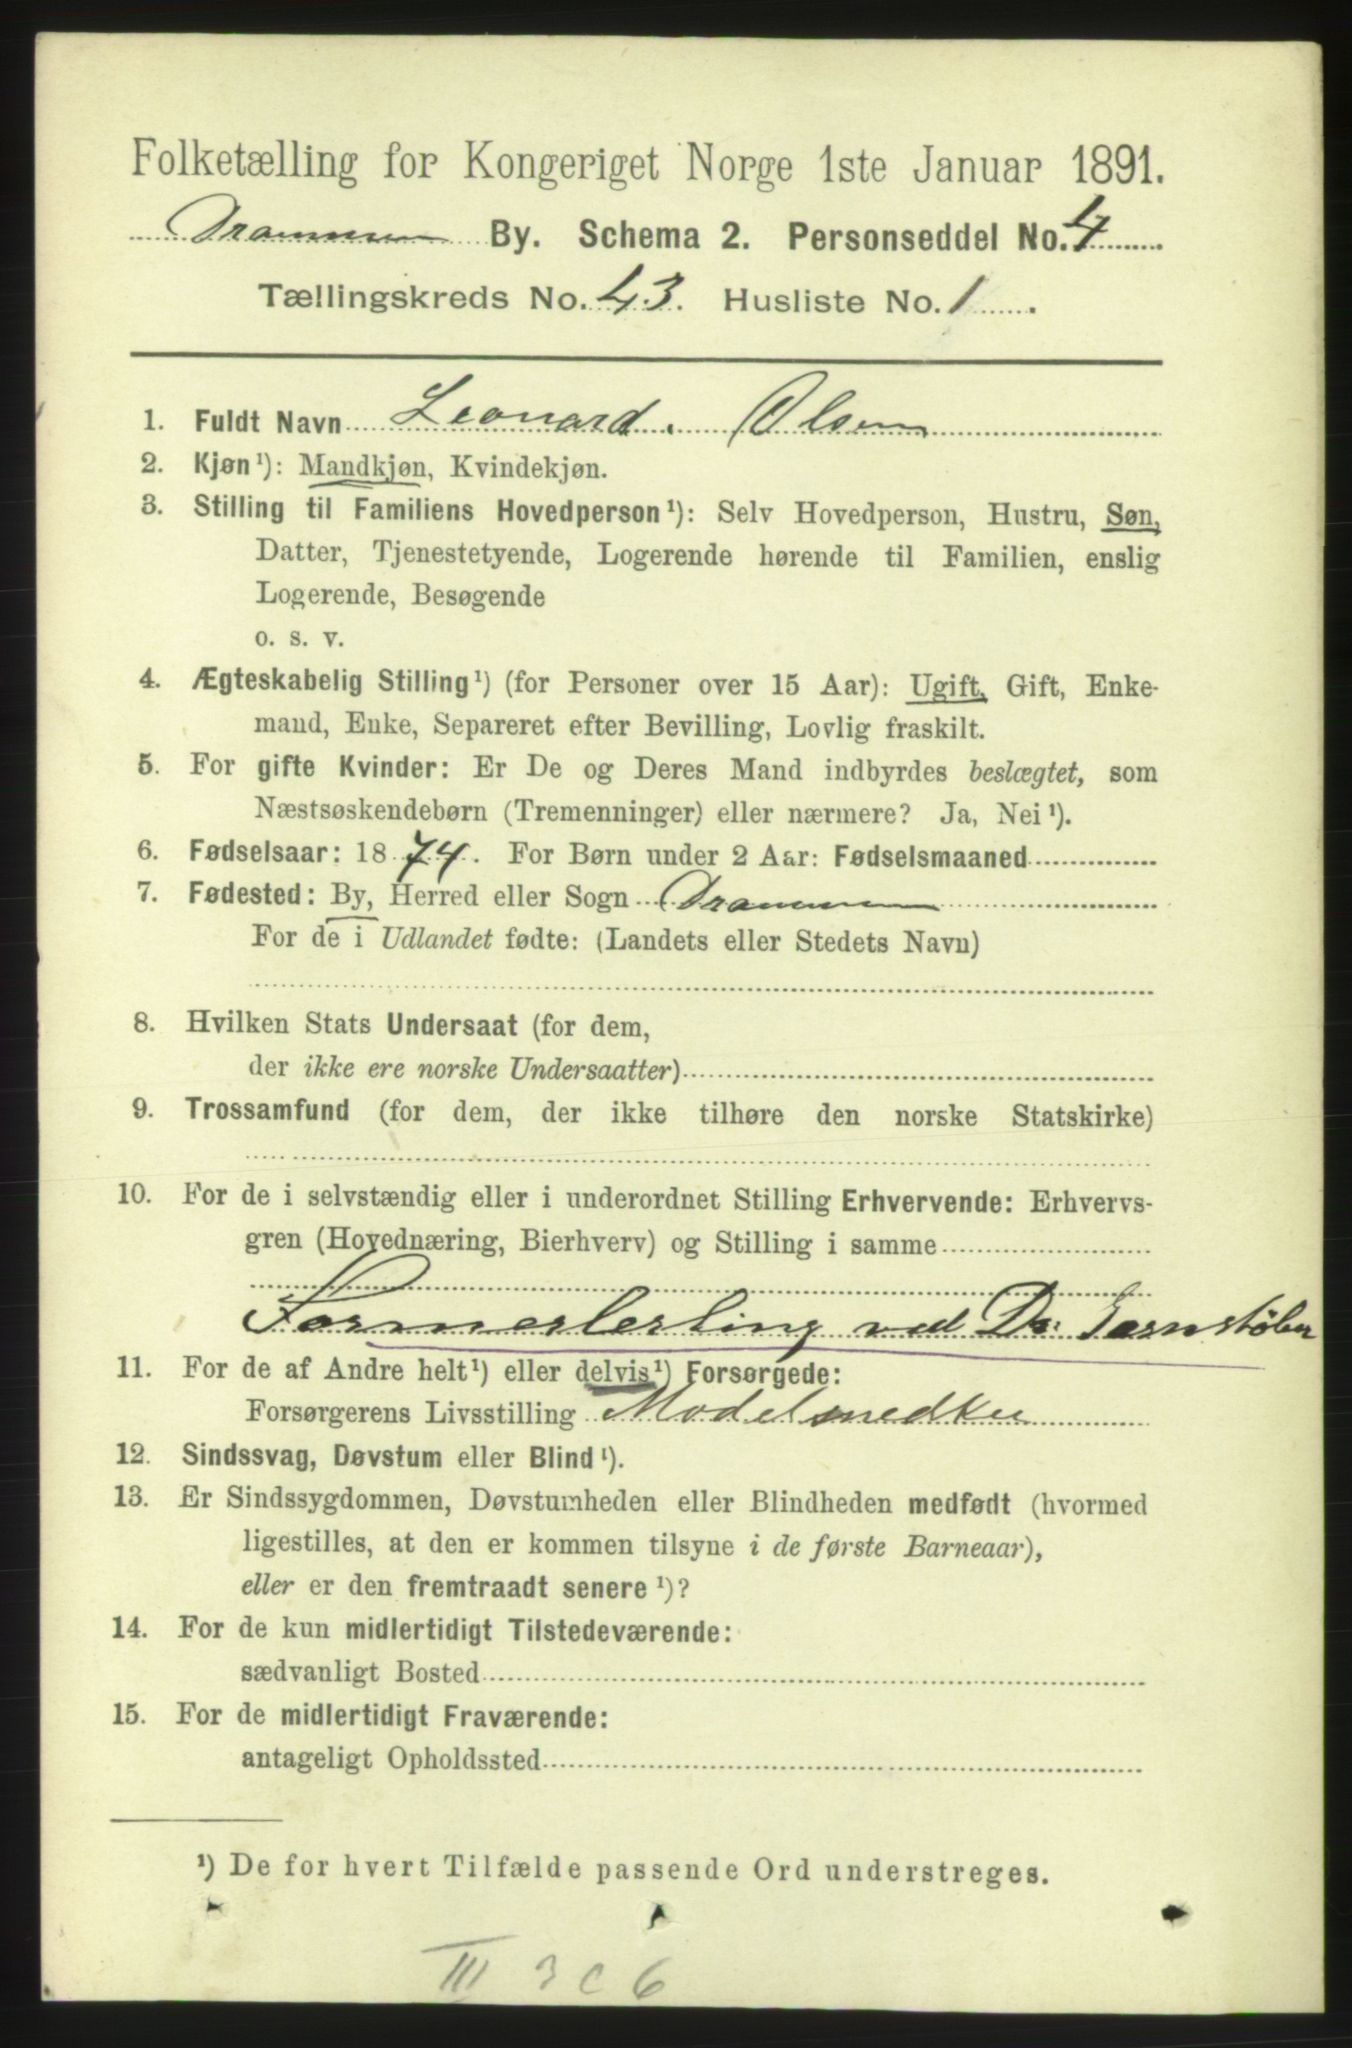 Folketælling for Kongeriget Norge 1ste Januar 1891.
Drammen By. Schema 2. Personseddel No. 4
Tællingskreds No. 43. Husliste No. 1.
1. Fuldt Navn Leonard. Olsen
2. Kjøn ¹): Mandkjøn, Kvindekjøn.
3. Stilling til Familiens Hovedperson ¹): Selv Hovedperson, Hustru, Søn,
Datter, Tjenestetyende, Logerende hørende til Familien, enslig
Logerende, Besøgende
o. s. v.
4. Ægteskabelig Stilling ¹) (for Personer over 15 Aar): Ugift, Gift, Enke-
mand, Enke, Separeret efter Bevilling, Lovlig fraskilt.
5. For gifte Kvinder: Er De og Deres Mand indbyrdes beslægtet, som
Næstsøskendebørn (Tremenninger) eller nærmere? Ja, Nei ¹).
6. Fødselsaar: 1874. For Børn under 2 Aar: Fødselsmaaned
7. Fødested: By, Herred eller Sogn Drammen
For de i Udlandet fødte: (Landets eller Stedets Navn)
8. Hvilken Stats Undersaat (for dem,
der ikke ere norske Undersaatter)
9. Trossamfund (for dem, der ikke tilhøre den norske Statskirke)
10. For de i selvstændig eller i underordnet Stilling Erhvervende: Erhvervs-
gren (Hovednæring, Bierhverv) og Stilling i samme
Formerlerling ved Dr: Jernstøberi
11. For de af Andre helt ¹) eller delvis ¹) Forsørgede:
Forsørgerens Livsstilling Modelsnedker
12. Sindssvag, Døvstum eller Blind ¹).
13. Er Sindssygdommen, Døvstumheden eller Blindheden medfødt (hvormed
ligestilles, at den er kommen tilsyne i de første Barneaar),
eller er den fremtraadt senere ¹)?
14. For de kun midlertidigt Tilstedeværende:
sædvanligt Bosted
15. For de midlertidigt Fraværende:
antageligt Opholdssted
¹) De for hvert Tilfælde passende Ord understreges.
III 3 c 6